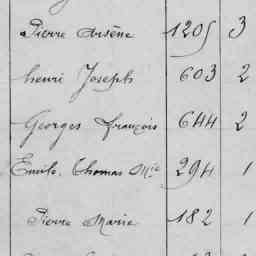 Pierre Arsène 1205 3
henri Joseph 603 2
Georges françois 644 2
Emile, Thomas Mie 294 1
Pierre Marie 182 1